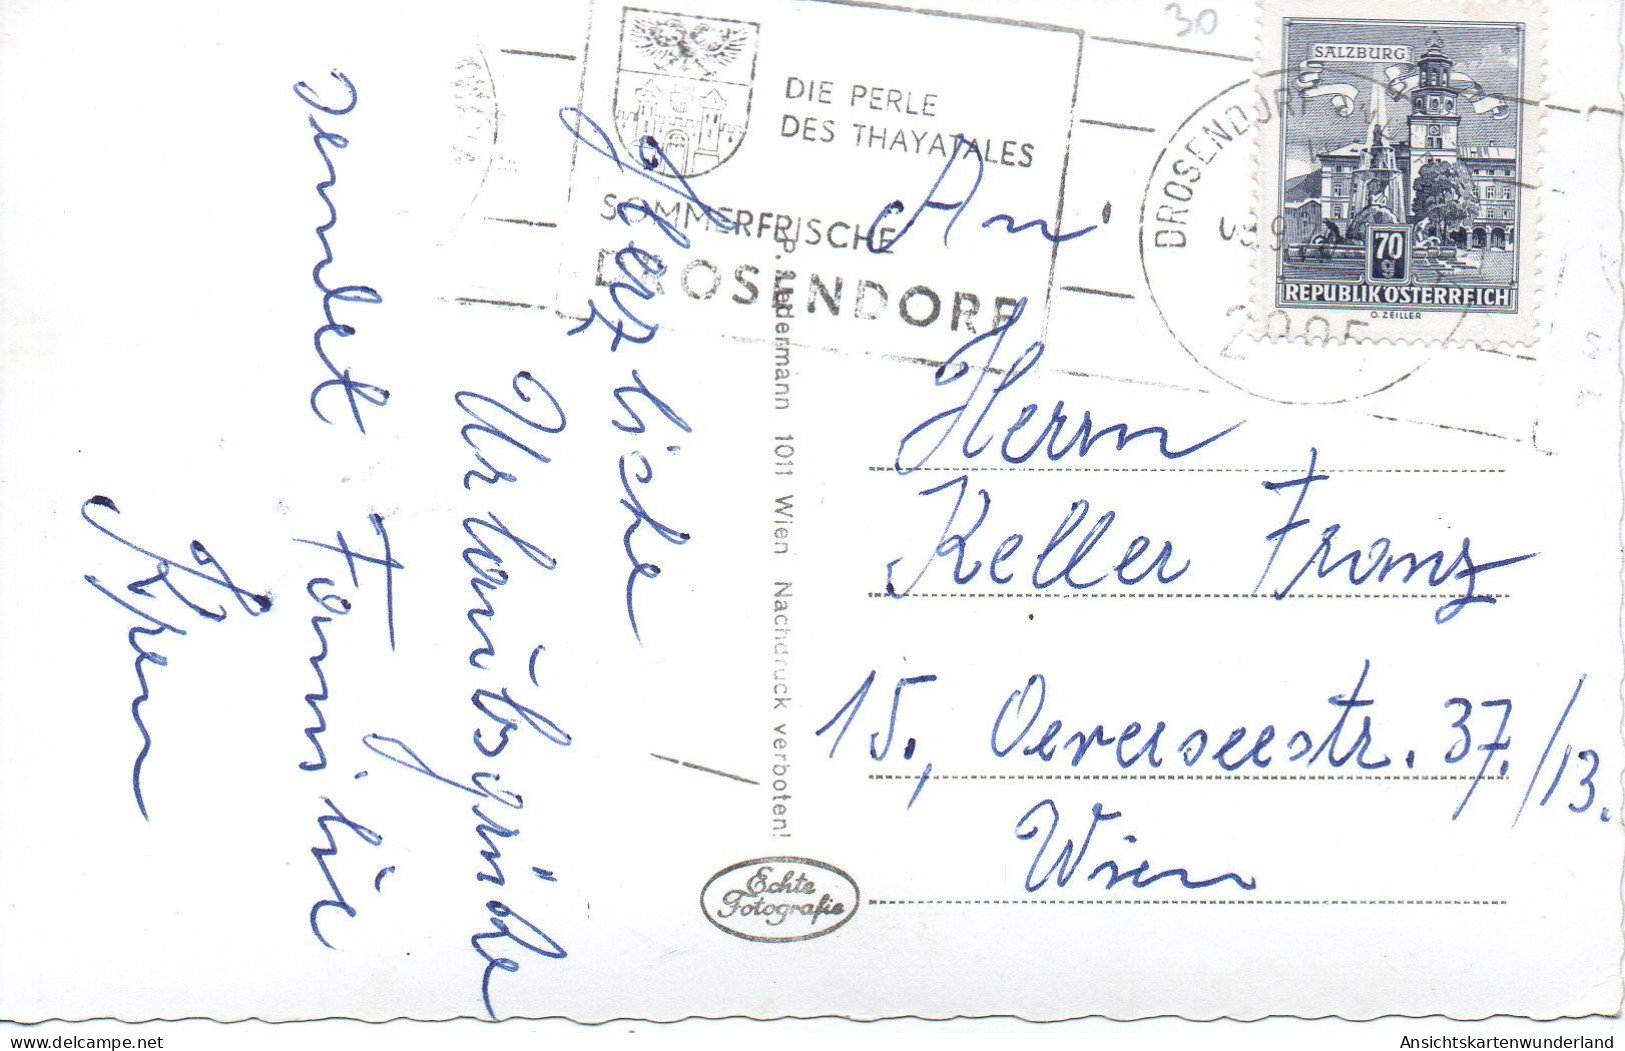 30
DIE PERLE
DES THAYATALES
SOMMERFRISCHE
DROSENDORF
DROSENDORF
SALZBURG
70
g
REPUBLIK ÖSTERREICH
O. ZEILLER
Herzliche
Urlaubsgrüße
sendet Familie
P. Ledermann 1011 Wien Nachdruck verboten!
Echte
Fotografie
An
Herrn
Keller Franz
15., Oeverseestr. 37./13.
Wien
delcampe.net
Ansichtskartenwunderland